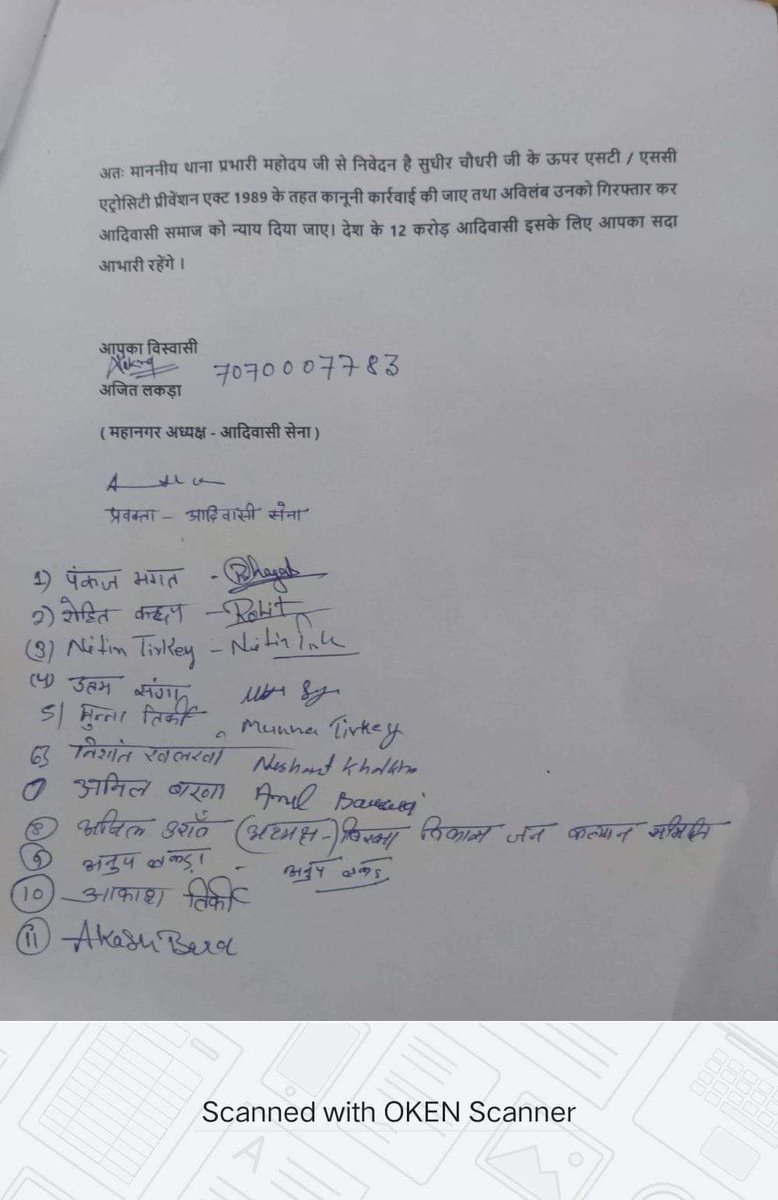 अतः माननीय थाना प्रभारी महोदय जी से निवेदन है सुधीर चौधरी जी के ऊपर एसटी / एससी
एट्रोसिटी प्रीवेंशन एक्ट 1989 के तहत कानूनी कार्रवाई की जाए तथा अविलंब उनको गिरफ्तार कर
आदिवासी समाज को न्याय दिया जाए। देश के 12 करोड़ आदिवासी इसके लिए आपका सदा
आभारी रहेंगे ।
आपका विस्वासी
7070007783
अजित लकड़ा
( महानगर अध्यक्ष - आदिवासी सेना )
प्रवक्ता - आदिवासी सेना
1) पंकज भगत - Bhagat
2) रोहित - Rohit
(3) Nitin Tirkey - Nitin
(4) उत्तम संगा
5) मुन्ना तिर्की Munna Tirkey
6) निशांत खलखो Nishant Khalkho
7 अनिल Anil
8 उराँव (अध्यक्ष-) विकास जन कल्यान समिति
9 अनुप लकड़ा - अनुप लकड़ा
10 आकाश तिर्की
11 Akash
Scanned with OKEN Scanner